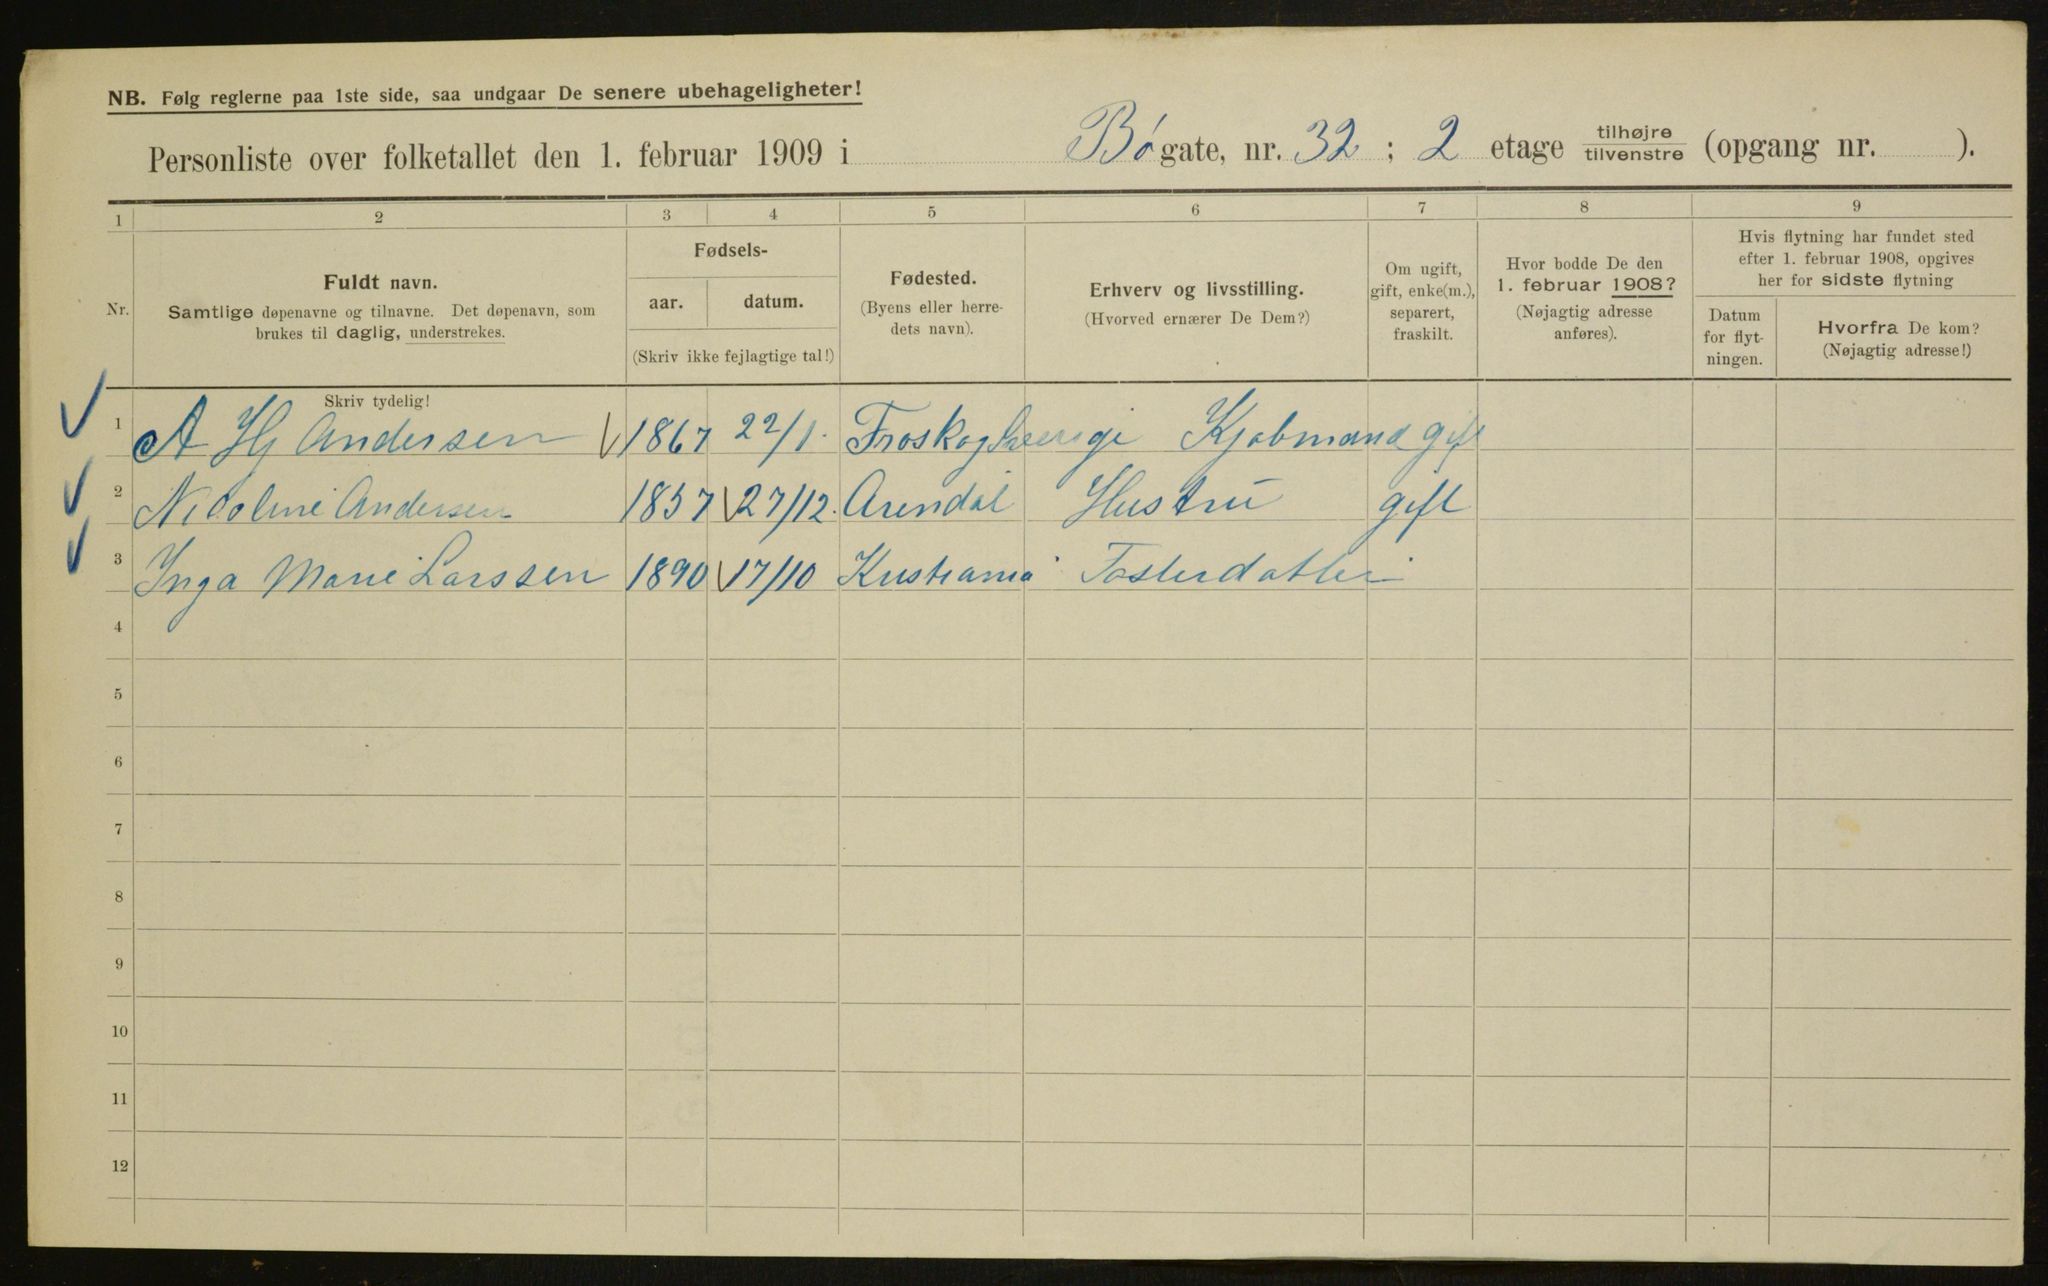 NB. Følg reglerne paa 1ste side, saa undgaar De senere ubehageligheter!
Personliste over folketallet den 1. februar 1909 i Bøgate, nr. 32 ; 2 etage tilhøjre/tilvenstre (opgang nr. ).
1 2 3 4 5 6 7 8 9
Nr.
Fuldt navn.
Samtlige døpenavne og tilnavne. Det døpenavn, som
brukes til daglig, understrekes.
Fødsels-
aar. datum.
(Skriv ikke fejlagtige tal!)
Fødested.
(Byens eller herre-
dets navn).
Erhverv og livsstilling.
(Hvorved ernærer De Dem?)
Om ugift,
gift, enke(m.),
separert,
fraskilt.
Hvor bodde De den
1. februar 1908?
(Nøjagtig adresse
anføres).
Hvis flytning har fundet sted
efter 1. februar 1908, opgives
her for sidste flytning
Datum
for flyt-
ningen.
Hvorfra De kom?
(Nøjagtig adresse!)
Skriv tydelig!
1 A Hj Andersen 1867 22/1. Kjøbmand gift
2 Nicoline Andersen 1857 27/12. Arendal Hustru gift
3 Inga Marie Larssen 1890 17/10 Kristiania Fosterdatter
4
5
6
7
8
9
10
11
12